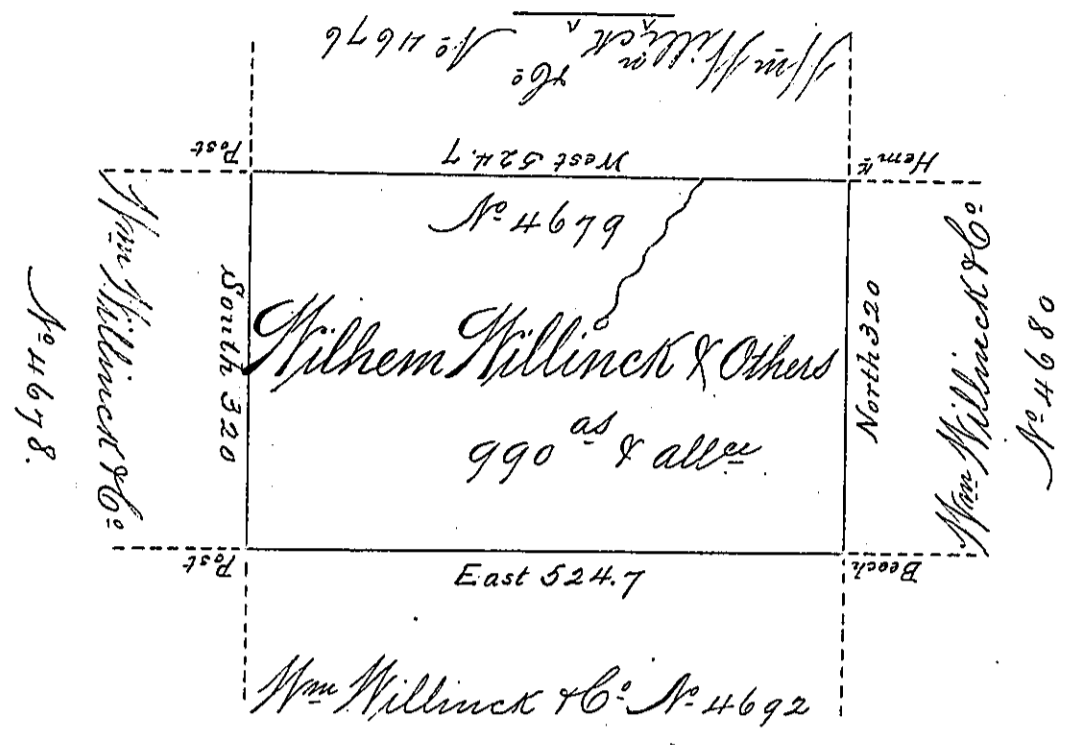 Wm Willinck & Co No 4676
Post
West 524.7
Hemk
No 4679
Wm Willinck & Co
No 4678.
South 320
Wilhem Willinck & Others
990 as & allce
North 320
Wm Willinck & Co
No 4680
Post
East 524.7
Beech
Wm Willinck & Co No 4692